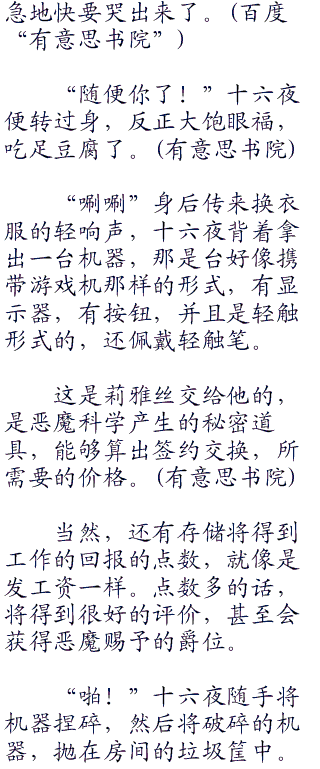 急地快要哭出来了。(百度
“有意思书院”)
“随便你了！”十六夜
便转过身，反正大饱眼福，
吃足豆腐了。(有意思书院)
“唰唰”身后传来换衣
服的轻响声，十六夜背着拿
出一台机器，那是台好像携
带游戏机那样的形式，有显
示器，有按钮，并且是轻触
形式的，还佩戴轻触笔。
这是莉雅丝交给他的，
是恶魔科学产生的秘密道
具，能够算出签约交换，所
需要的价格。(有意思书院)
当然，还有存储将得到
工作的回报的点数，就像是
发工资一样。点数多的话，
将得到很好的评价，甚至会
获得恶魔赐予的爵位。
“啪！”十六夜随手将
机器捏碎，然后将破碎的机
器，抛在房间的垃圾筐中。